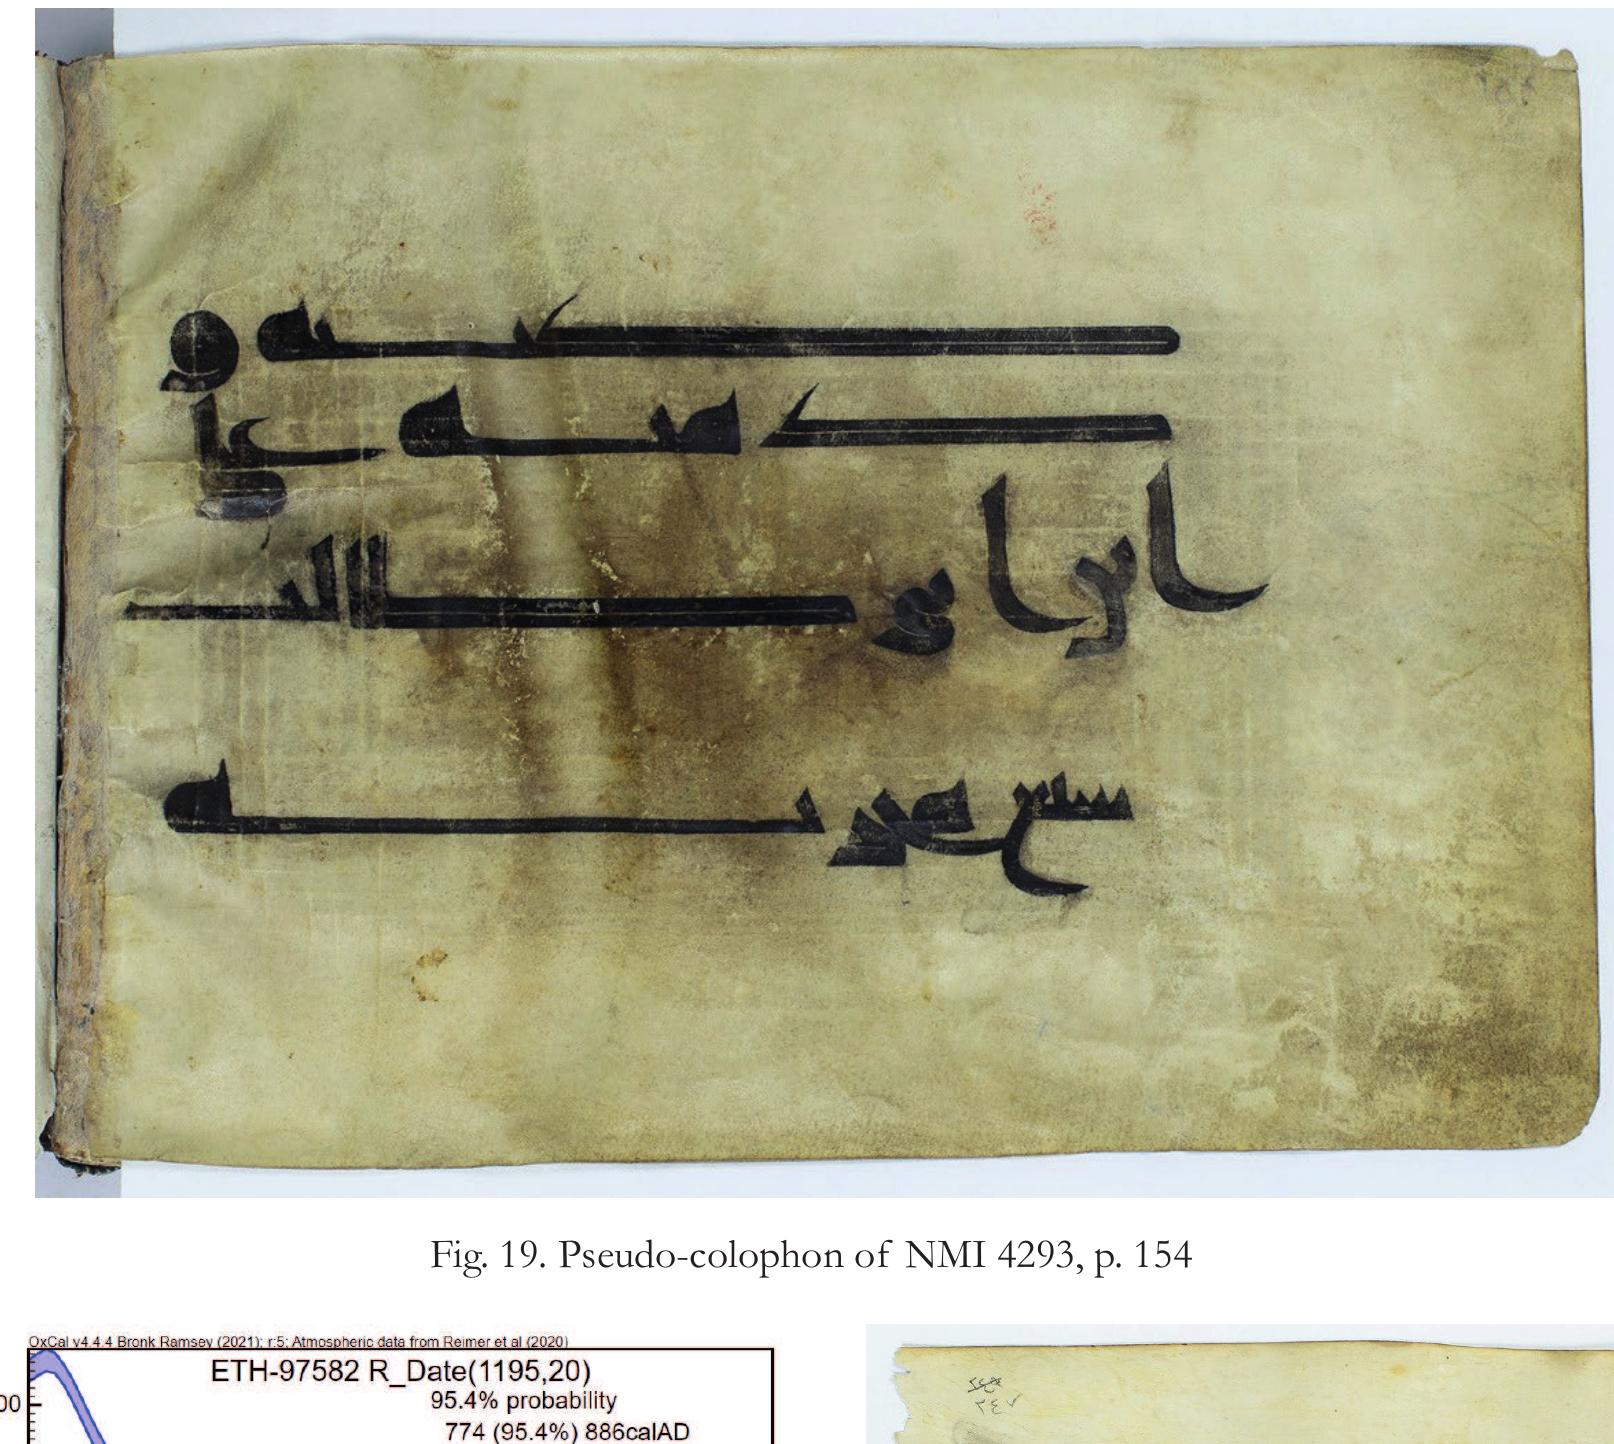 ١٥٤
كتبه و
علي
ابن ابو طالب
Fig. 19. Pseudo-colophon of NMI 4293, p. 154
OxCal v4.4.4 Bronk Ramsey (2021); r:5; Atmospheric data from Reimer et al (2020)
ETH-97582 R_Date(1195,20)
95.4% probability
774 (95.4%) 886calAD
٢٤٧